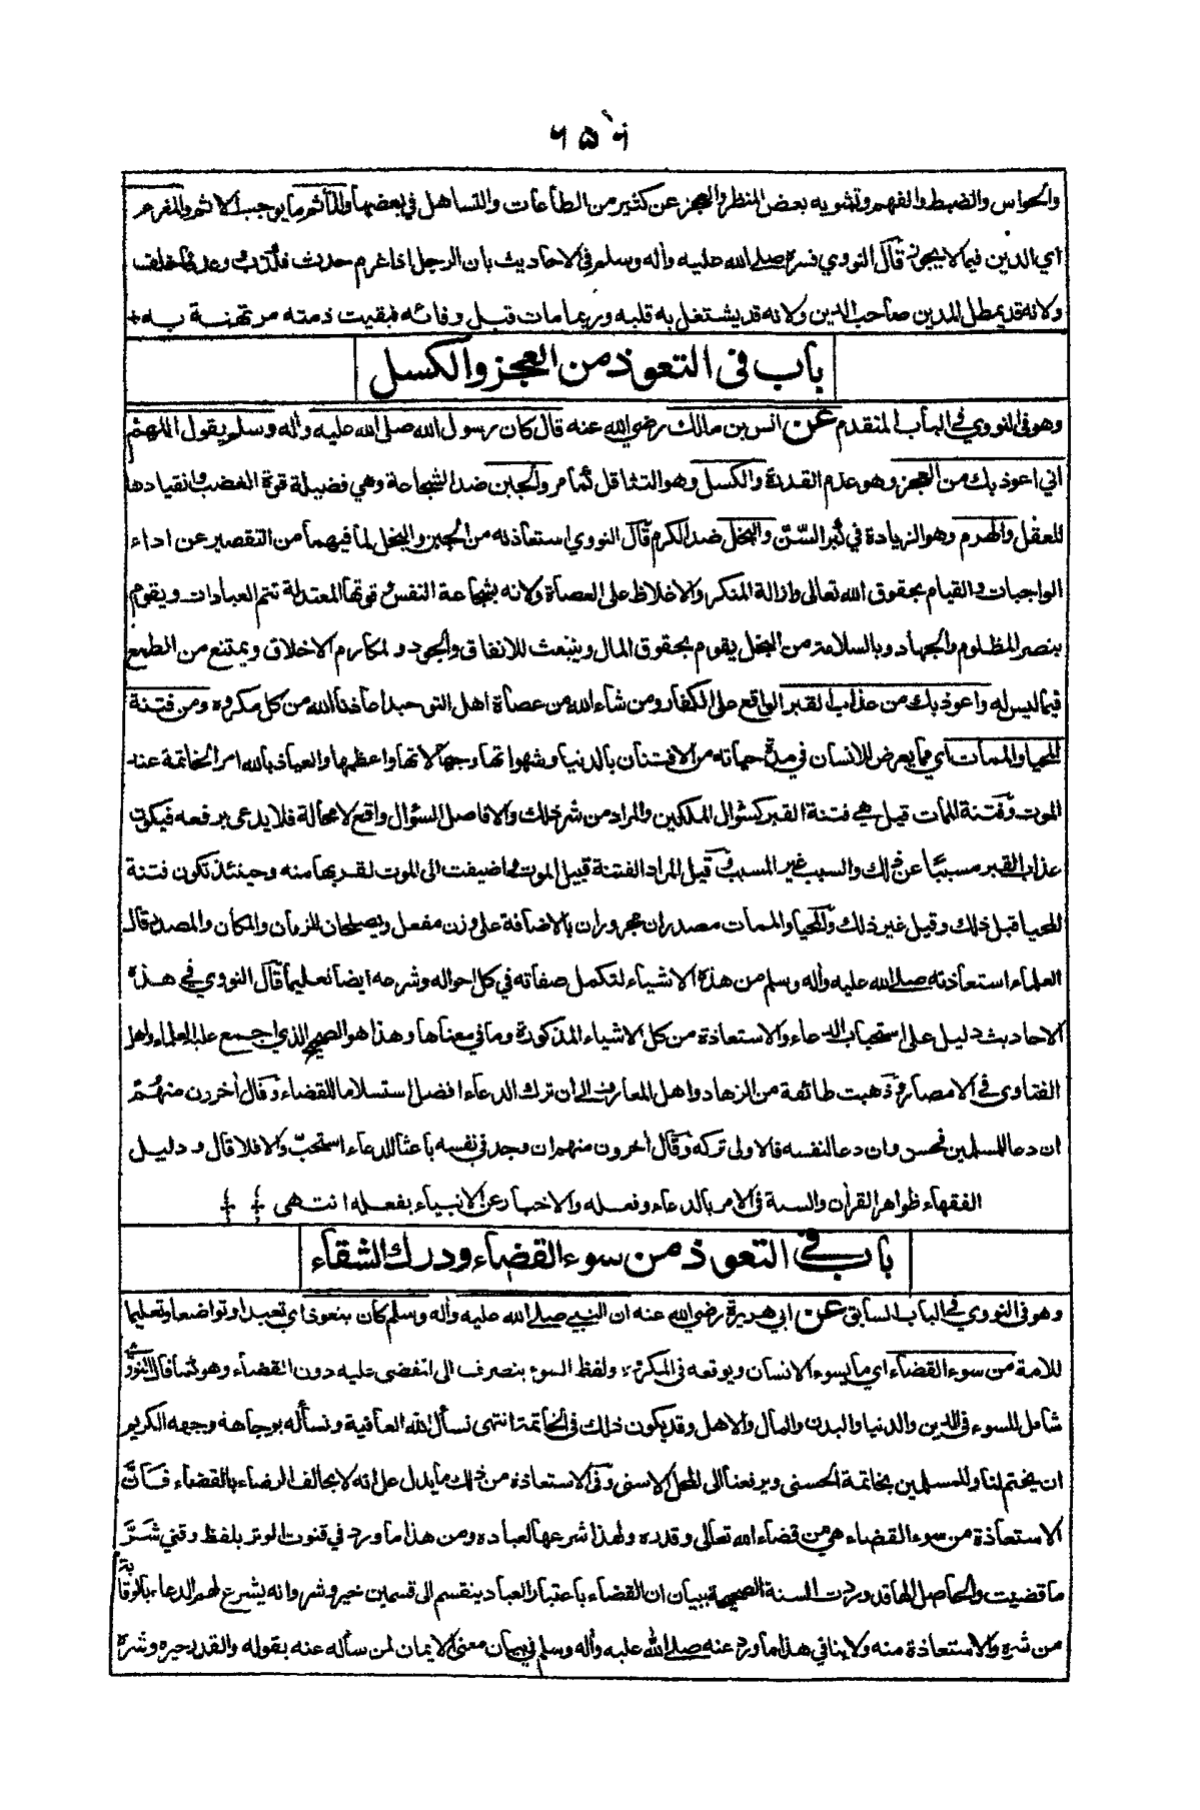 ٦٥٦
والحواس والضبط والفهم وتشويه بعض المنظر والعجز عن كثير من الطاعات والتساهل في بعضها والمأثم ما يوجب الاثم والمغرم
اي الدين فيما لا يجوز قال النووي فسره صلى الله عليه وأله وسلم في الاحاديث بان الرجل اذا غرم حدث فكذب ووعد فاخلف
ولانه قد يمطل المدين صاحب الدين ولانه قد يشتغل به قلبه وربما مات قبل وفائه فبقيت ذمته مرتهنة به
باب في التعوذ من العجز والكسل
وهو في النووي في الباب المتقدم عن انس بن مالك رضي الله عنه قال كان رسول الله صلى الله عليه وأله وسلم يقول اللهم
اني اعوذ بك من العجز وهو عدم القدرة والكسل وهو التثاقل كما مر والجبن ضد الشجاعة وهي فضيلة قوة الغضب وانقيادها
للعقل والهرم وهو الزيادة في كبر السن والبخل ضد الكرم قال النووي استعاذته من الجبن والبخل لما فيهما من التقصير عن اداء
الواجبات والقيام بحقوق الله تعالى وازالة المنكر والاغلاظ على العصاة ولانه بشجاعة النفس وقوتها المعتدلة تتم العبادات ويقوم
بنصر المظلوم والجهاد وبالسلامة من البخل يقوم بحقوق المال وينبعث للانفاق والجود ولمكارم الاخلاق ويمتنع من الطمع
فيما ليس له واعوذ بك من عذاب القبر الواقع على الكفار ومن شاء الله من عصاة اهل التوحيد اعاذنا الله من كل مكروه ومن فتنة
المحيا والممات اي مما يعرض للانسان في مدة حياته من الافتنان بالدنيا وشهواتها وجهالاتها واعظمها والعياذ بالله امر الخاتمة عند
الموت وفتنة الممات قيل هي فتنة القبر كسؤال الملكين والمراد من شر ذلك والا فاصل السؤال واقع لا محالة فلا يدعى برفعه فيكون
عذاب القبر مسببا عن ذلك والسبب غير المسبب وقيل المراد الفتنة قبيل الموت اضيفت الى الموت لقربها منه وحينئذ تكون فتنة
المحيا قبل ذلك وقيل غير ذلك والمحيا والممات مصدران مجروران بالاضافة على وزن مفعل ويصلحان للزمان والمكان والمصدر قال
العلماء استعاذته صلى الله عليه وأله وسلم من هذه الاشياء لتكمل صفاته في كل احواله وشرعه ايضا تعليما قال النووي في هذه
الاحاديث دليل على استحباب الدعاء والاستعاذة من كل الاشياء المذكورة وما في معناها وهذا هو الصحيح الذي اجمع عليه العلماء واهل
الفتاوى في الامصار وذهبت طائفة من الزهاد واهل المعارف الى ان ترك الدعاء افضل استسلاما للقضاء وقال أخرون منهم
ان دعا للمسلمين فحسن وان دعا لنفسه فالاولى تركه وقال أخرون منهم ان وجد في نفسه باعثا للدعاء استحب والا فلا قال ودليل
الفقهاء ظواهر القرأن والسنة في الامر بالدعاء وفعله والاخبار عن الانبياء بفعله انتهى
باب في التعوذ من سوء القضاء ودرك الشقاء
وهو في النووي في الباب السابق عن ابي هريرة رضي الله عنه ان النبي صلى الله عليه وأله وسلم كان يتعوذ اي تعبدا وتواضعا وتعليما
للامة من سوء القضاء اي ما يسوء الانسان ويوقعه في المكروه ولفظ السوء ينصرف الى المقضي عليه دون القضاء وهو كما قال النووي
شامل للسوء في الدين والدنيا والبدن والمال والاهل وقد يكون ذلك في الخاتمة انتهى نسأل الله العافية ونسأله بوجاهة وجهه الكريم
ان يختم لنا وللمسلمين بخاتمة الحسنى ويرفعنا الى المحل الاسنى وفي الاستعاذة من ذلك ما يدل على انه لا يخالف الرضاء بالقضاء فان
الاستعاذة من سوء القضاء هي من قضاء الله تعالى وقدره ولهذا شرعها لعباده ومن هذا ما ورد في قنوت الوتر بلفظ وقني شر
ما قضيت والحاصل انها قد وردت السنة الصحيحة ببيان ان القضاء باعتبار العباد ينقسم الى قسمين خير وشر وانه يشرع لهم الدعاء بالوقاية
من شره والاستعاذة منه ولا ينافي هذا ما ورد عنه صلى الله عليه وأله وسلم في بيان معنى الايمان لمن سأله عنه بقوله والقدر خيره وشره